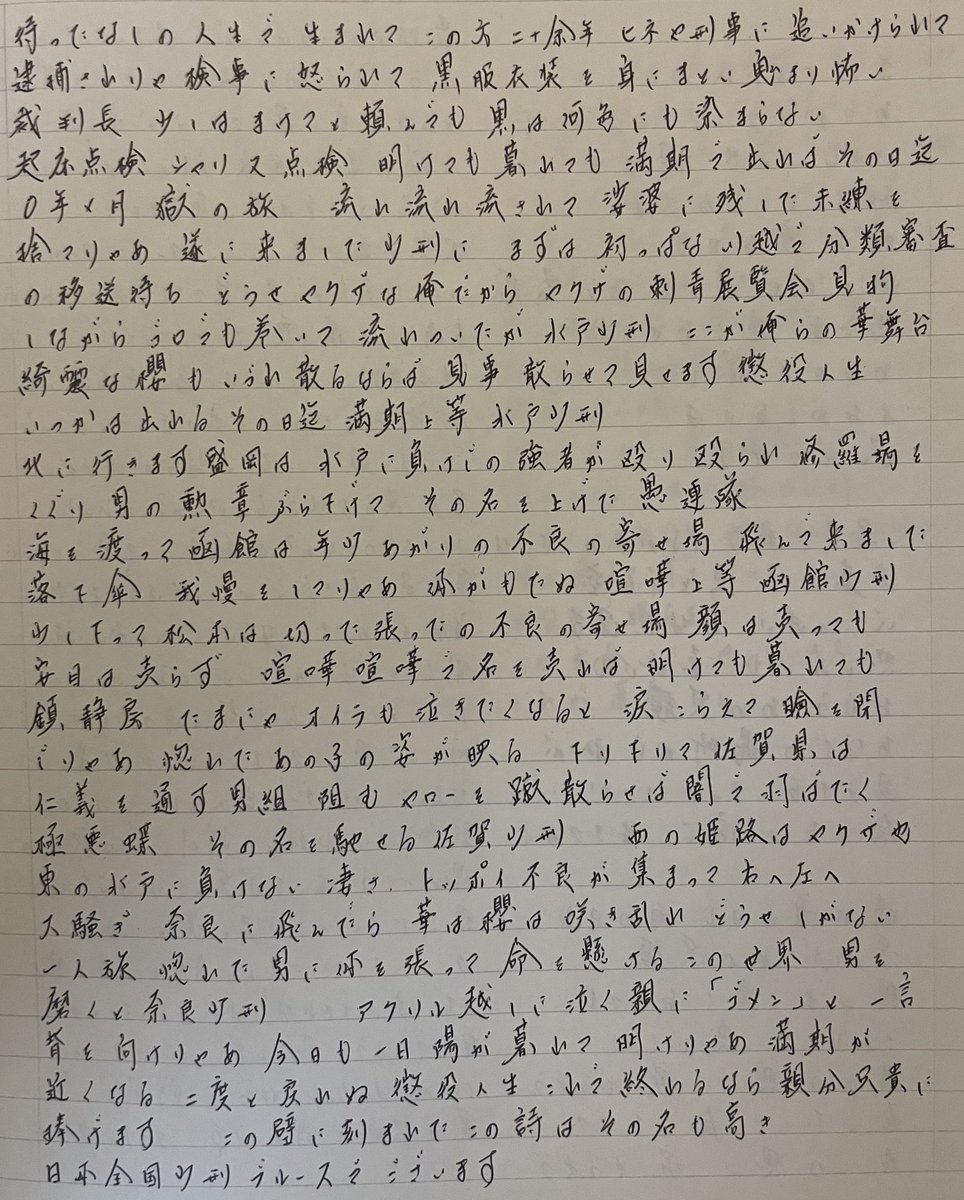 待ったなしの人生で 生まれて この方 二十余年 ヒネや刑事に 追いかけられて
逮捕されりゃ 検事に 怒られて 黒服衣装を 身にまとい 鬼より怖い
裁判長 少しは まけてと 頼んでも 黒は何色にも 染まらない
起床点検 シャリス点検 明けても 暮れても 満期で 出ればその日迄
0年×月 獄の旅 流れ流れ流されて 娑婆に残した未練を
捨てりゃあ 遂に来ました少刑に まずは 初っぱな川越で 分類審査
の移送待ち どうせヤクザな俺だから ヤクザの刺青展覧会見物
しながら とも巻いて 流れついたが 水戸少刑 ここが俺らの華舞台
綺麗な櫻も いずれ散るならば 見事 散らせて見せます 懲役人生
いつかは出れる その日迄 満期上等 水戸少刑
北に行きます盛岡は 水戸に負けじの強者が 殴り殴られ 修羅場を
くぐり男の勲章 ぶら下げて その名を上げた 愚連隊
海を渡って函館は 年少あがりの不良の寄せ場 飛んで来ました
落下傘 我慢をしてりゃあ 体がもたぬ 喧嘩上等 函館少刑
少し下って松本は 切った張ったの不良の寄せ場 顔は売っても
安目は売らず 喧嘩喧嘩で名を売れば 明けても暮れても
鎮静房 たまにゃオイラも泣きたくなると 涙こらえて 瞼を閉
じりゃあ 惚れたあの子の姿が映る 下り下りて 佐賀県は
仁義を通す男組 阻むヤローを 蹴散らせば 闇で羽ばたく
極悪蝶 その名を馳せる 佐賀少刑 西の姫路はヤクザも
東の水戸に負けない凄さ トッポイ不良が 集まって 右へ左へ
大騒ぎ 奈良に飛んだら 華は櫻は 咲き乱れ どうせしがない
一人旅 惚れた男に体を張って 命を懸けるこの世界 男を
磨くと奈良少刑 アクリル越しに泣く親に 「ゴメン」と 一言
背を向けりゃあ 今日も一日陽が暮れて 明けりゃあ 満期が
近くなる 二度と戻れぬ 懲役人生 これで終れるなら 親分兄貴に
捧げます この壁に刻まれた この詩は その名も高き
日本全国少刑ブルースでございます